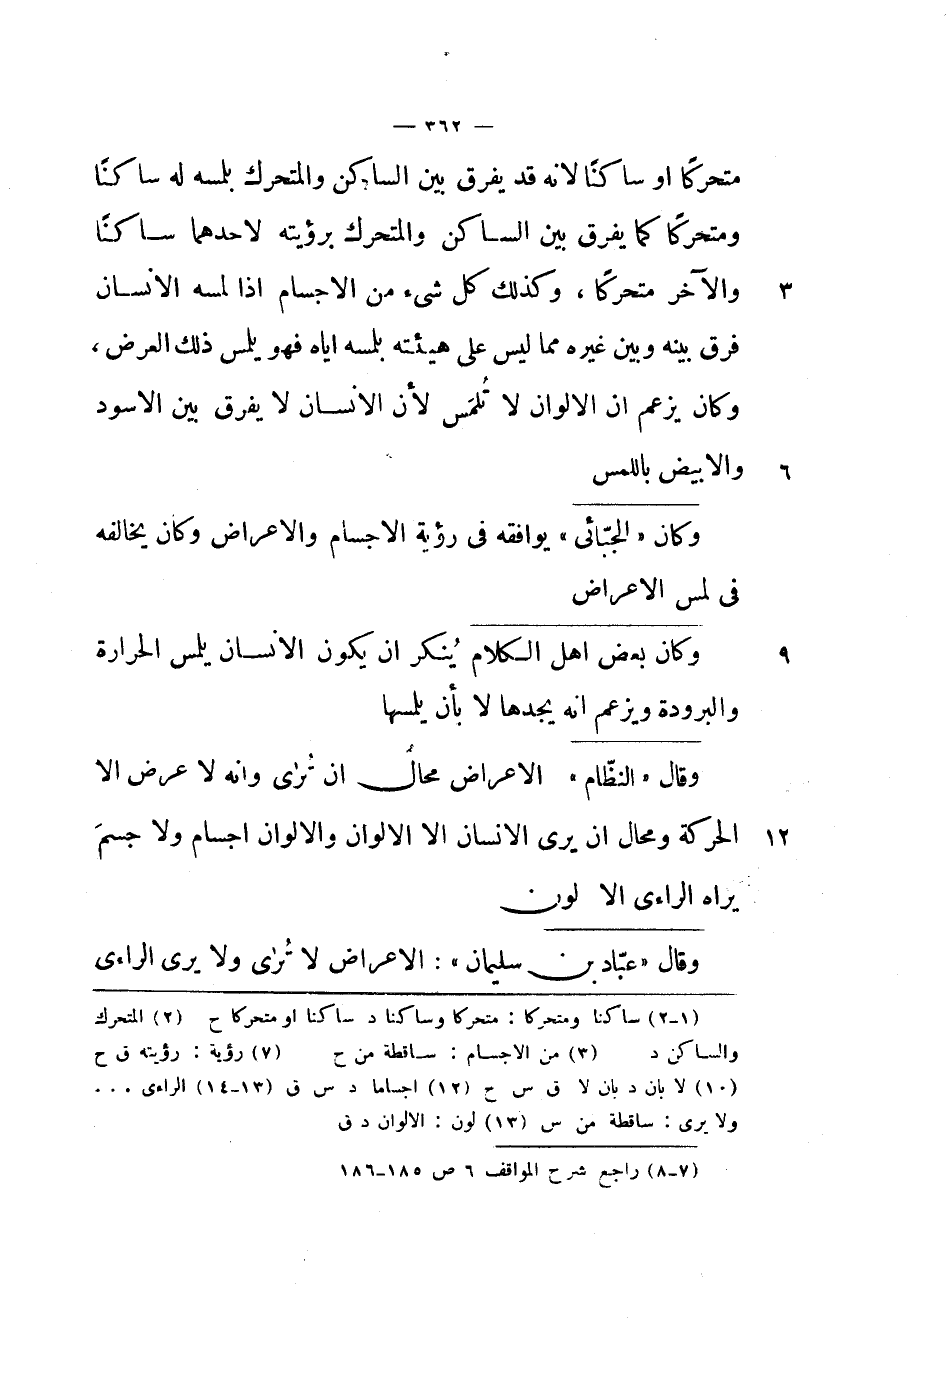 — ٣٦٢ —
متحركًا او ساكنًا لانه قد يفرق بين الساكن والمتحرك بلمسه له ساكنًا
ومتحركًا كما يفرق بين الساكن والمتحرك برؤيته لاحدهما ساكنًا
٣ والآخر متحركًا ، وكذلك كل شىء من الاجسام اذا لمسه الانسان
فرق بينه وبين غيره مما ليس على هيئته بلمسه اياه فهو يلمس ذلك العرض ،
وكان يزعم ان الالوان لا تُلمَس لأن الانسان لا يفرق بين الاسود
٦ والابيض باللمس
وكان «الجبّائى» يوافقه فى رؤية الاجسام والاعراض وكان يخالفه
فى لمس الاعراض
٩ وكان بعض اهل الكلام يُنكر ان يكون الانسان يلمس الحرارة
والبرودة ويزعم انه يجدها لا بأن يلمسها
وقال «النظّام» الاعراض محالٌ ان تُرٰى وانه لا عرض الا
١٢ الحركة ومحال ان يرى الانسان الا الالوان والالوان اجسام ولا جسمَ
يراه الراءى الا لون
وقال «عبّاد بن سليمان» : الاعراض لا تُرٰى ولا يرى الراءى
(١-٢) ساكنا ومتحركا : متحركا وساكنا د ساكنا او متحركا ح (٢) المتحرك
والساكن د (٣) من الاجسام : ساقطة من ح (٧) رؤية : رؤيته ق ح
(١٠) لا بان د بان لا ق س ح (١٢) اجساما د س ق (١٣-١٤) الراءى . . .
ولا يرى : ساقطة من س (١٣) لون : الالوان د ق
(٧-٨) راجع شرح المواقف ٦ ص ١٨٥-١٨٦